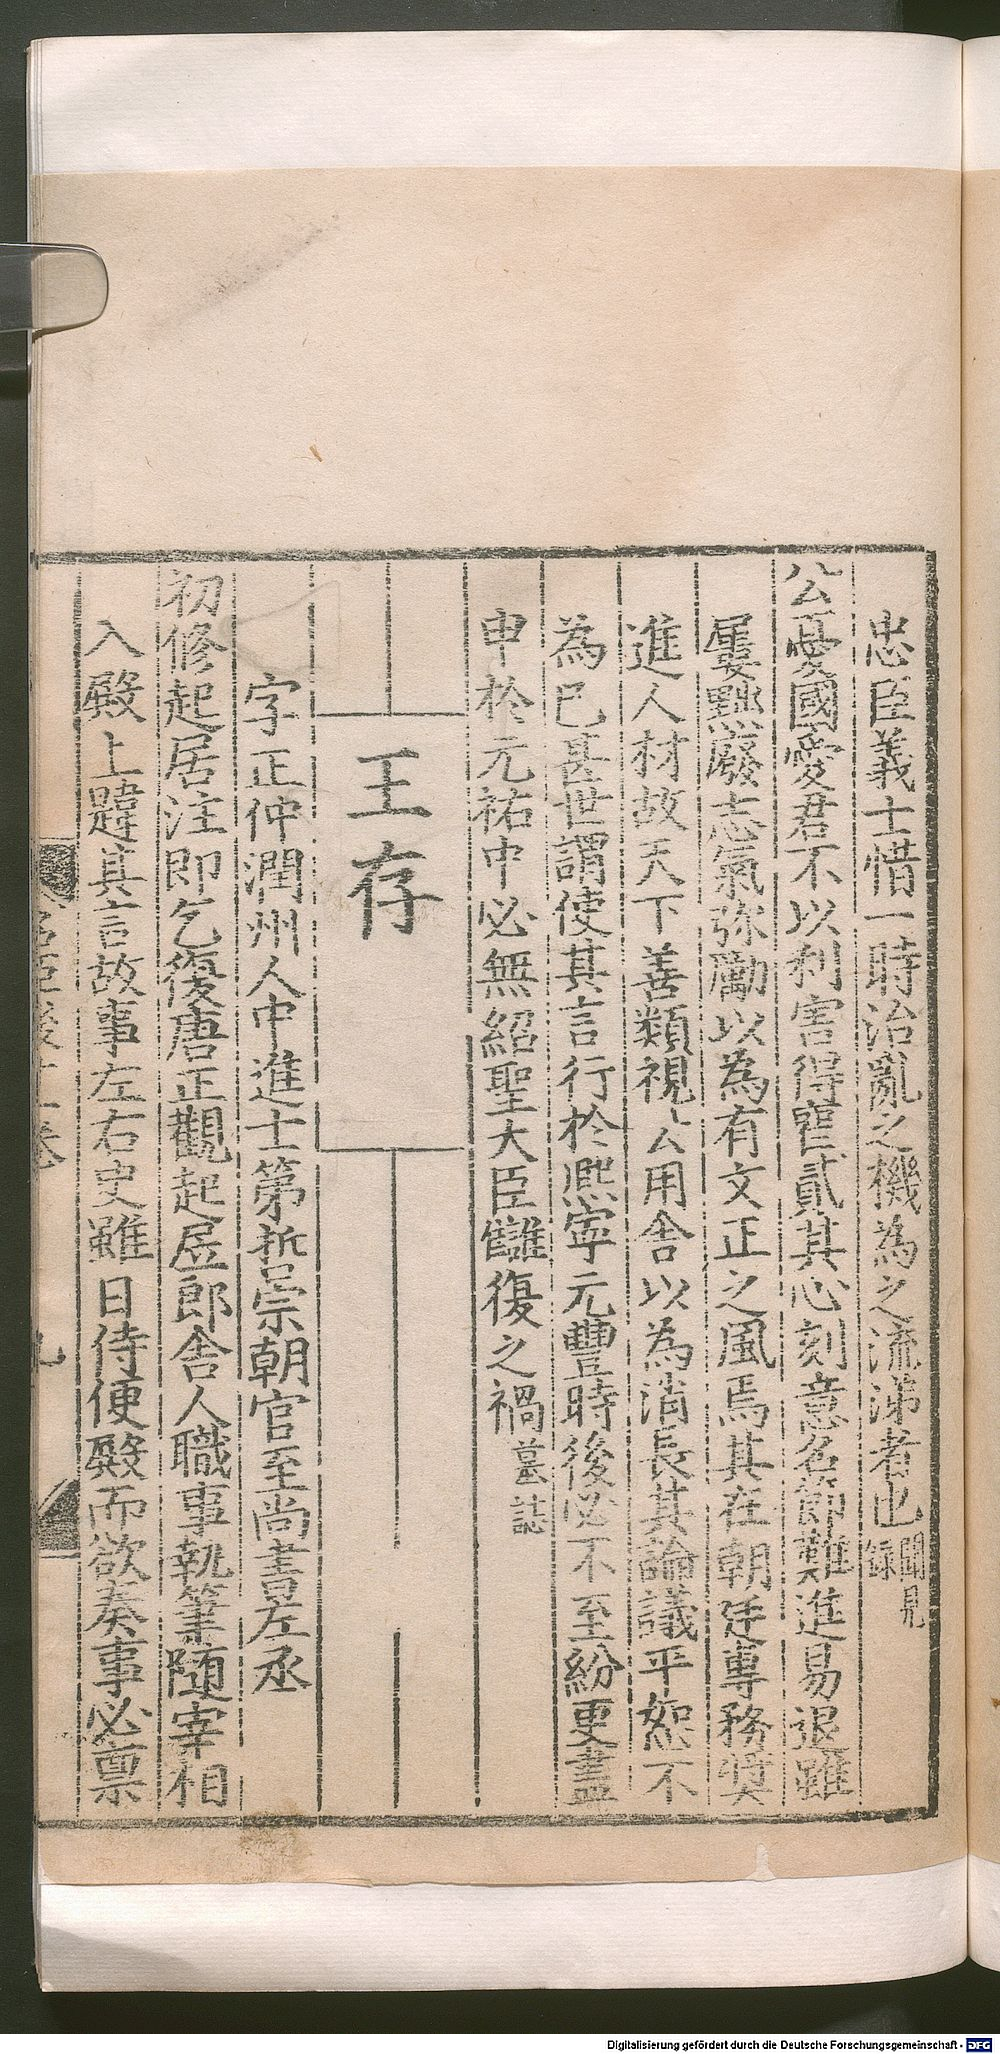 忠臣義士惜一時治亂之機為之流涕者也聞見錄
公憂國愛君不以利害得䘮貳其心刻意名節難進易退雖
屢黜廢志氣弥勵以為有文正之風焉其在朝廷專務奬
進人材故天下善類視公用舍以為消長其論議平恕不
為已甚世謂使其言行於熈寧元豐時後必不至紛更盡
申於元祐中必無紹聖大臣讎復之禍墓誌
王存
字正仲潤州人中進士第哲宗朝官至尚書左丞
初修起居注即乞復唐正觀起居郎舎人職事執筆随宰相
入殿上韙其言故事左右史雖日侍便殿而欲奏事必禀
名臣後十一卷
九
Digitalisierung gefördert durch die Deutsche Forschungsgemeinschaft - DFG